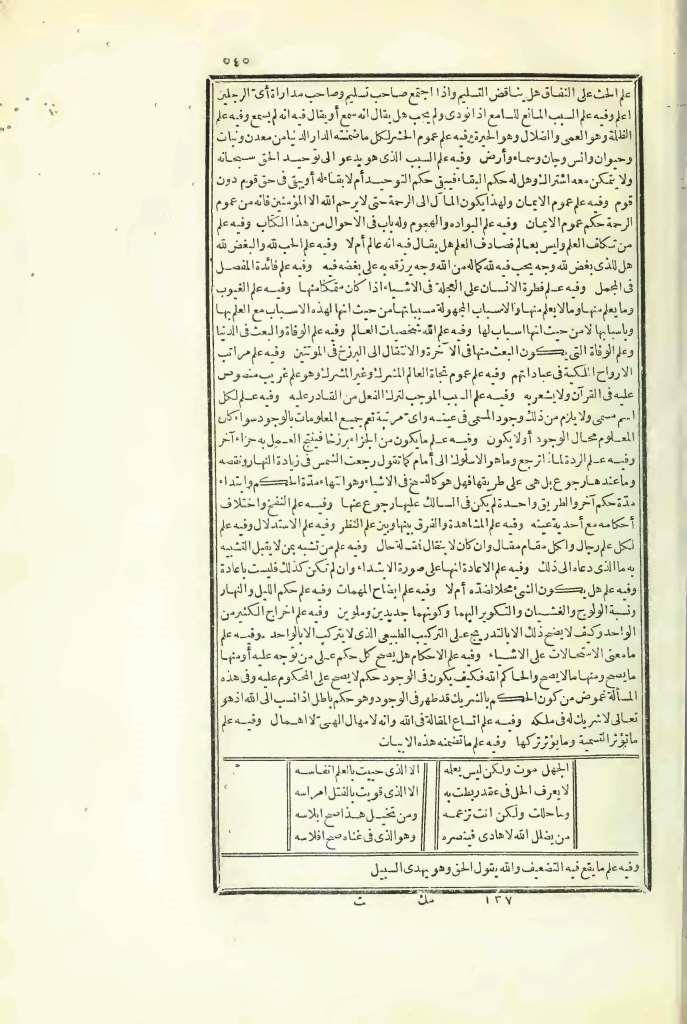 ٥٤٠
علم الحث على النفاق هل يناقض التسليم واذا اجتمع صاحب تسليم وصاحب مداراة أى الرجلين
اعلم وفيه علم السبب المانع للسامع اذا نودى ولم يجب هل يقال انه سمع أو يقال فيه انه لم يسمع وفيه علم
الظلة وهو العمى والضلال وهو الحيرة وفيه علم عموم الحشر لكل ما ضمنته الدار الدنيا من معدن ونبات
وحيوان وانس وجان وسماء وأرض وفيه علم السبب الذى هو يدعو الى توحيد الحق سبحانه
ولا يتمكن معه اشتراك وهل له حكم البقاء فيبقى حكم التوحيد أم لا بقاء له أو يبقى فى حق قوم دون
قوم وفيه علم عموم الايمان ولهذا يكون المآل الى الرحمة حتى لا يرحم الله الا المؤمنين فانه من عموم
الرحمة حكم عموم الايمان وفيه علم البواده والهجوم وله باب فى الاحوال من هذا الكتاب وفيه علم
من تكلف العلم وليس بعالم فصادف العلم هل يقال فيه انه عالم أم لا وفيه علم الحب لله والبغض لله
هل للذى بغض لله وجه يحب فيه لله كما له من الله وجه يرزقه به على بغضه فيه وفيه علم فائدة المفصل
فى المجمل وفيه علم فطرة الانسان على العجلة فى الاشياء اذا كان متمكنا منها وفيه علم الغيوب
وما يعلم منها وما لا يعلم منها والاسباب المجهولة مسبباتها من حيث انها لهذه الاسباب مع العلم بها
وباسبابها لا من حيث انها اسباب لها وفيه علم الله شخصيات العالم وفيه علم الوفاة والبعث فى الدنيا
وعلم الوفاة التى يكون البعث منها فى الآخرة والانتقال الى البرزخ فى الموتتين وفيه علم مراتب
الارواح الملكية فى عباداتهم وفيه علم عموم نجاة العالم المشرك وغير المشرك وهو علم غريب منصوص
عليه فى القرآن ولا يشعر به وفيه علم السبب الموجب لترك الفعل من القادر عليه وفيه علم لكل
اسم مسمى ولا يلزم من ذلك وجود المسمى فى عينه واى مرتبة تعم جميع المعلومات بالوجود سواء كان
المعلوم محال الوجود أو لا يكون وفيه علم ما يكون من الجزاء برزخا فينتج العمل به جزاء آخر
وفيه علم الردة لماذا ترجع وما هو الا سلوك الى أمام كما تقول رجعت الشمس فى زيادة النهار ونقصه
وما عندها رجوع بل هى على طريقها فهل هو كالنسخ فى الاشياء وهو انتهاء مدة الحكم وابتداء
مدة حكم آخر والطريق واحدة لم يكن فى السالك عليها رجوع عنها وفيه علم النفخ واختلاف
أحكامه مع أحدية عينه وفيه علم المشاهدة والفرق بينها وبين علم النظر وفيه علم الاستدلال وفيه علم
لكل علم رجال ولكل مقام مقال وان كان لا ينقال نقله حال وفيه علم من تشبه بمن لا يقبل التشبيه
به ما الذى دعاه الى ذلك وفيه علم الاعادة انها على صورة الابتداء وان لم تكن كذلك فليست باعادة
وفيه علم هل يكون الشئ محلا لضده أم لا وفيه علم ايضاح المهمات وفيه علم حكم الليل والنهار
ونسبة الولوج والغشيان والتكوير اليهما وكونهما جديدين وملوين وفيه علم اخراج الكثير من
الواحد وكيف لا يصح ذلك الا بالتدريج على التركيب الطبيعى الذى لا يتركب الا بالواحد وفيه علم
ما معنى الاستحالات على الاشياء وفيه علم الاحكام هل يصح كل حكم على من توجه عليه أو منها
ما يصح ومنها ما لا يصح والحاكم الله فكيف يكون فى الوجود حكم لا يصح على المحكوم عليه وفى هذه
المسألة غموض من كون الحكم بالشريك قد ظهر فى الوجود وهو حكم باطل اذا نسب الى الله اذ هو
تعالى لا شريك له فى ملكه وفيه علم اتساع المقالة فى الله وانه لامهال الهى لا اهمال وفيه علم
ما تؤثر التسمية وما يؤثر تركها وفيه علم ما تضمنه هذه الابيات
الجهل موت ولكن ليس يعلمه الا الذى حييت بالعلم انفاسه
لا يعرف الحل فى عقد ربطت به الا الذى قويت بالفتل امراسه
وما حللت ولكن انت تزعمه ومن تخيل هذا صح ابلاسه
من يضلل الله لا هادى فينصره وهو الذى فى غناه صح افلاسه
وفيه علم ما يقع فيه التضعيف والله يقول الحق وهو يهدى السبيل
١٣٧ مك ت